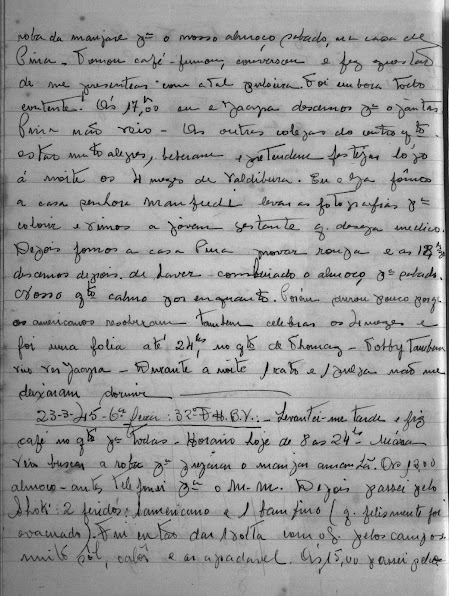 roba da mangiare pª o nosso almoço sabado, na casa de
Pina - Tomou café - fumou, conversou e fez questão
de me presentear com a tal pulseira. Foi embora todo
contente. Ás 17,00 eu e Jacyra descemos pª o jantar.
Pina não veio - As outras colegas do outro qtº
estão muito alegres, beberam e pretendem festejar logo
á noite os 4 mezes de Valdibura. Eu e fômos
a casa senhora Manfredi levar as fotografias pª
colorir e vimos a jovem gestante q. deseja medico.
Depois fomos a casa Pina provar roupa e as
descemos depois de haver combinado o almoço pª sabado.
Nosso qtº calmo por enquanto. Porém durou pouco porq.
os americanos resolveram tambem celebrar os 4 mezes e
foi uma folia até 24,hs no qtº de Thomaz - Tobby tambem
veio ver Jacyra - Durante a noite 1 rato e 1 pulga não me
deixaram dormir
23-3-45-6ª feira: 32º D.H.B.V.: - Levantei-me tarde e fiz
café no qtº pª todas - Horario hoje de 8 as 24hs Maria
veio buscar a roba pª preparar o manjar amanhã. Ás
almoço - antes telefonei pª o M.M. Depois passei pelo
Shok: 2 feridos: 1 americano e 1 bambino (q. felismente foi
evacuado). Em então dar 1 volta com pelos campos
muito sol, calôr e ar agradavel. Ás 15,00 passei pelo